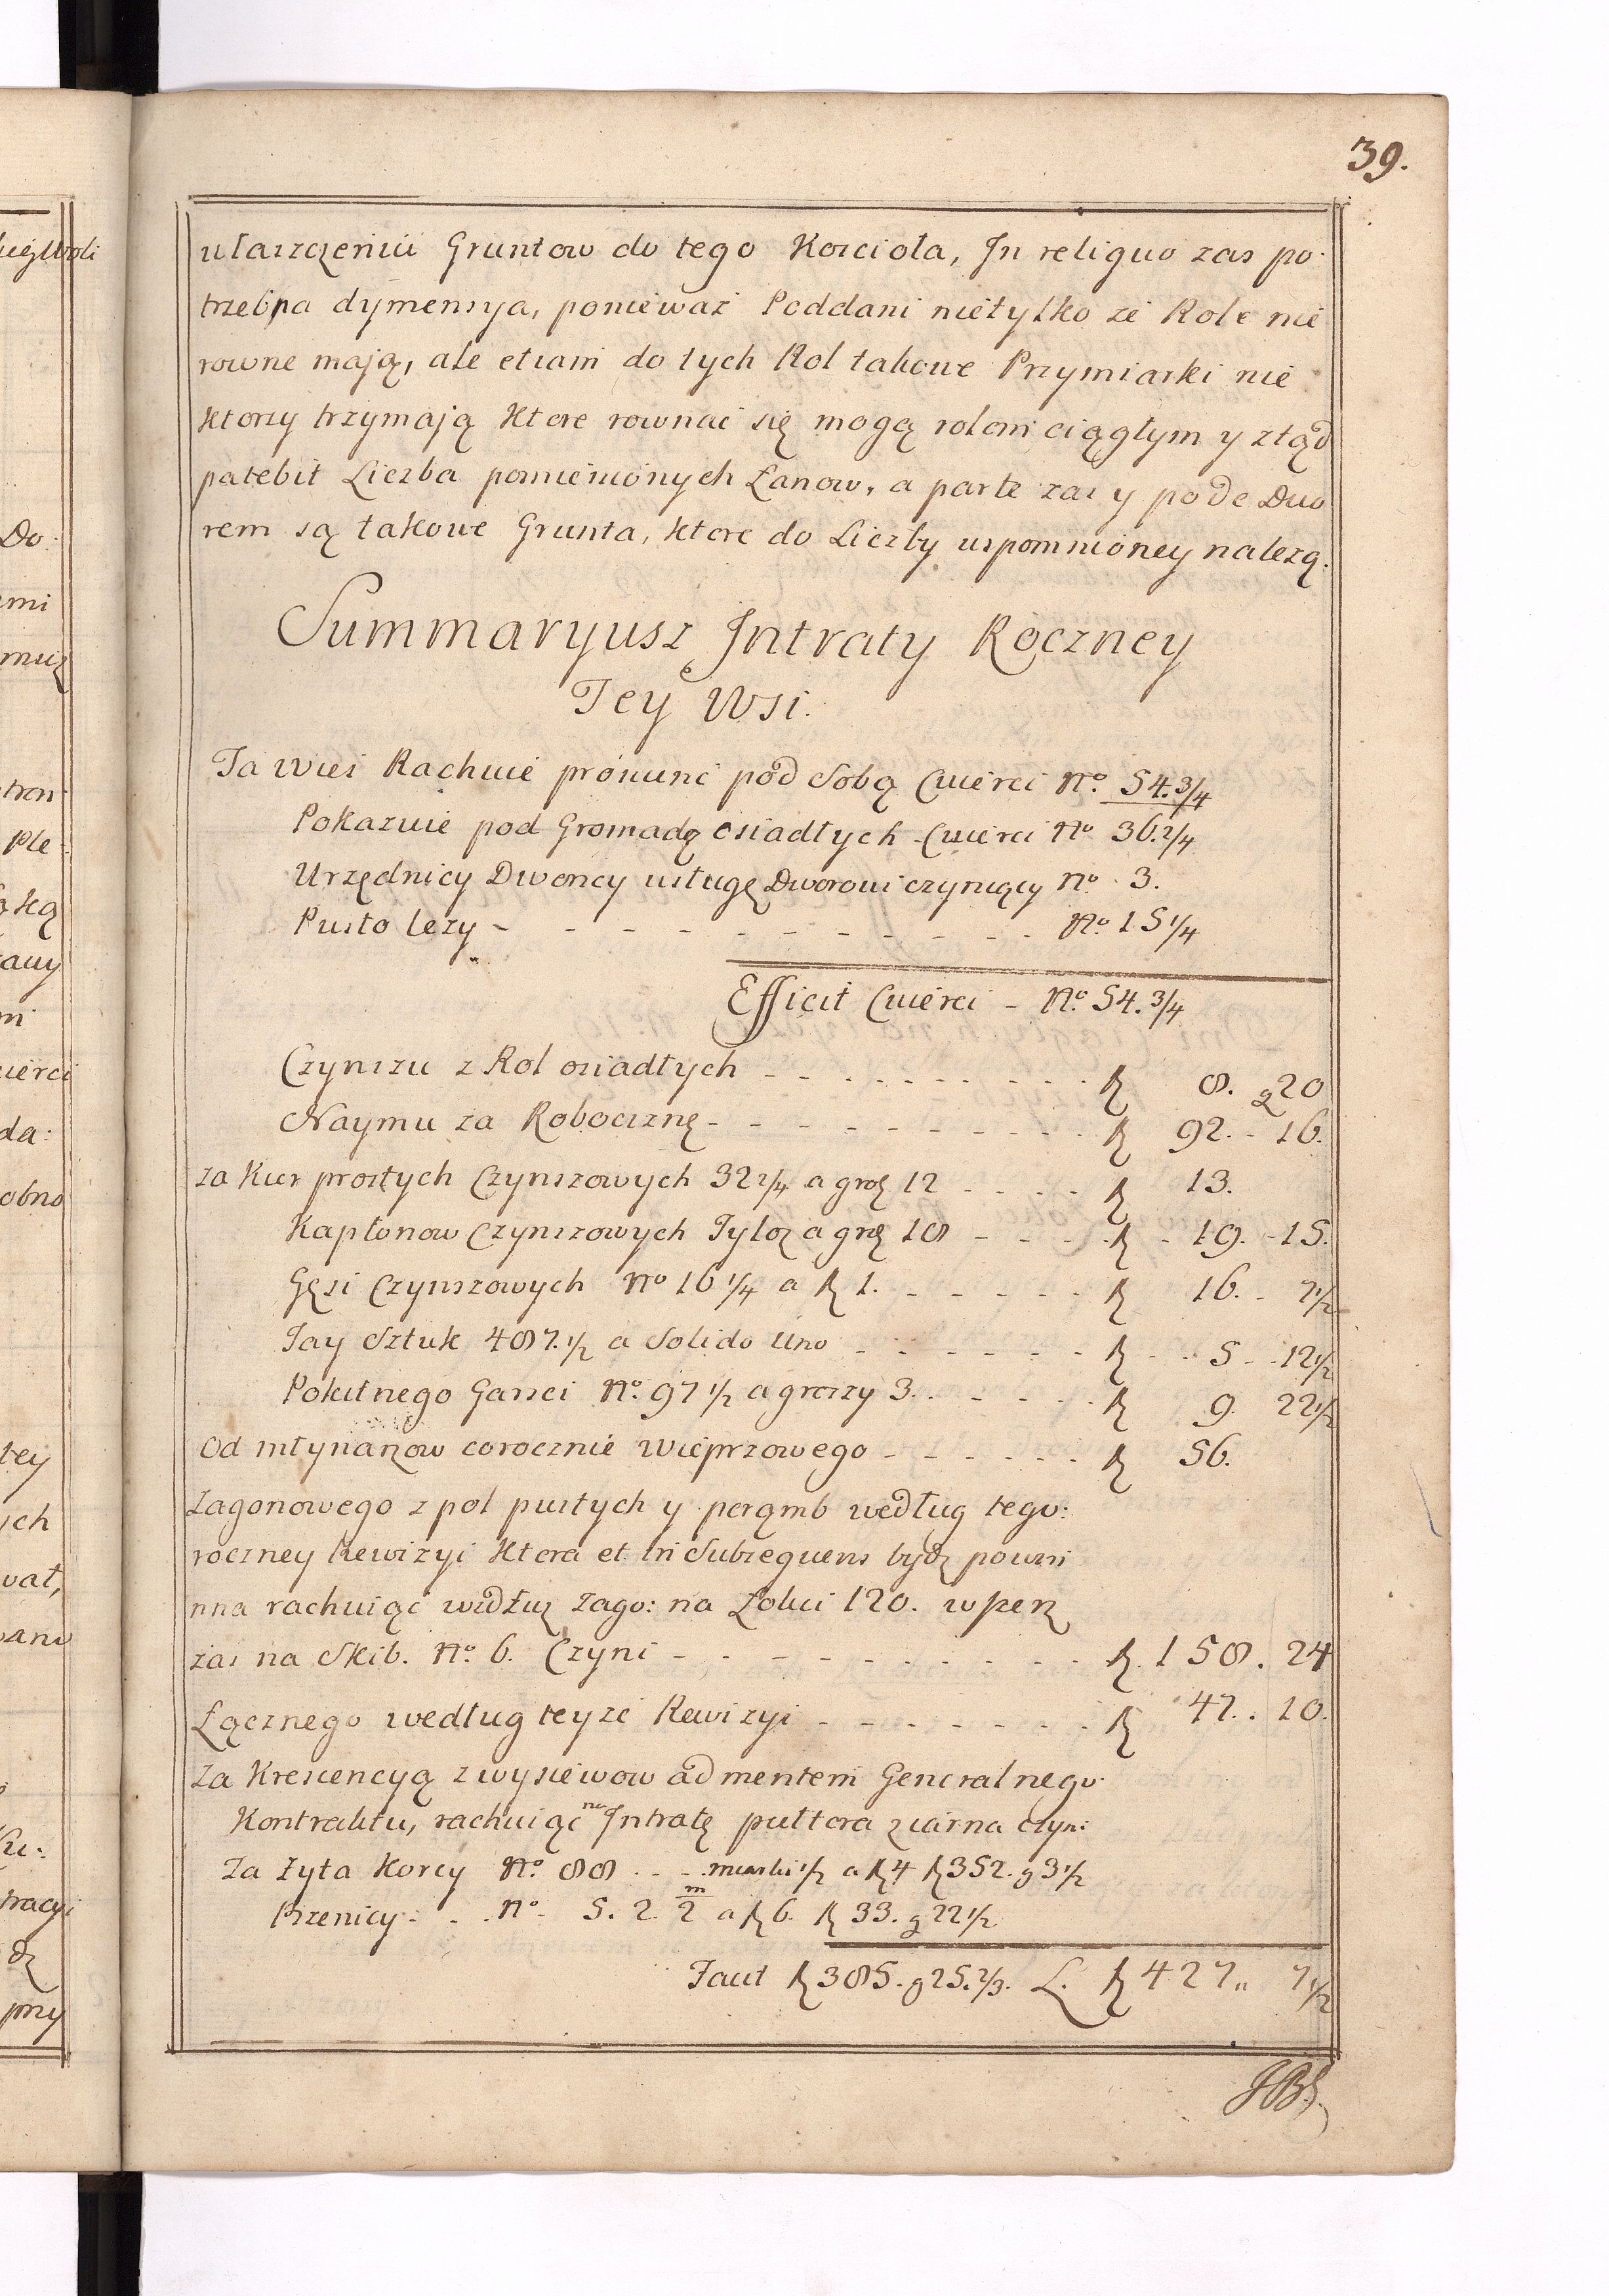 39.
ułaszczeniu Gruntow do tego Koscioła, In reliquo zas po
trzebna dymensya, ponieważ Poddani nietylko ze Role nie
rowne mają, ale etiam do tych Rol takowe Przymiarki nie
ktorzy trzymają ktore rownać się mogą rolom ciągłym y ztąd
patebit Liczba pomienionych Łanow, a parte zas y pode Dwo
rem są takowe Grunta, ktore do Liczby wspomnioney nalezą.
Summaryusz Intraty Roczney
Tey Wsi.
Ta Wieś Rachuie pronunc pod Sobą Cwierci No. 54.3/4
Pokazuie pod Gromadą osiadłych Cwierci No 36.2/4
Urzędnicy Dworscy usługę Dworowi czyniący No. 3.
Pusto lezy - - - - - - - - - - No. 15 1/4
Efficit Cwierci - No. 54.3/4
Czynszu z Rol osiadłych - - - - - - - - - - 8. g 20
Naymu za Robociznę - - - - - - - - - - 92. - 16.
za Kur prostych Czynszowych 32 2/4 a grosz 12 - - - - 13.
Kapłonow Czynszowych Tyloz a gr 18 - - - - 19. - 15.
Gęsi Czynszowych No 16 1/4 a 1. - - - - - 16. - 7 1/2
Jay Sztuk 487.1/2 a Solido Uno - - - - - - 5 - - 12 1/2
Pokutnego Garści No. 97 1/2 a groszy 3. - - - - 9. 22 1/2
Od młynarzow corocznie Wieprzowego - - - - - - 56.
Zagonowego z pol pustych y poręmb według tego:
roczney Rewizyi ktora et in Subsequens bydz powin
nna rachuiąc wzdłuz Zago: na Łokci 120. wperz
zas na Skib. No. 6. Czyni - - - - - - - - - 158. 24
Łącznego według teyze Rewizyi - - - - - - - 47. . 10.
Za Krescencyą z wysiewow ad mentem Generalnego
Kontraktu, rachuiąc na Intratę pułtora ziarna czyni
Za Zyta Korcy No. 88 . . - miarki 1/2 a 4 352. g 3 1/2
Pszenicy - . . No. 5. 2. m 2 a 6. 33. g 22 1/2
Facit 385. g 25.2/3. L. 427,, 7 1/2